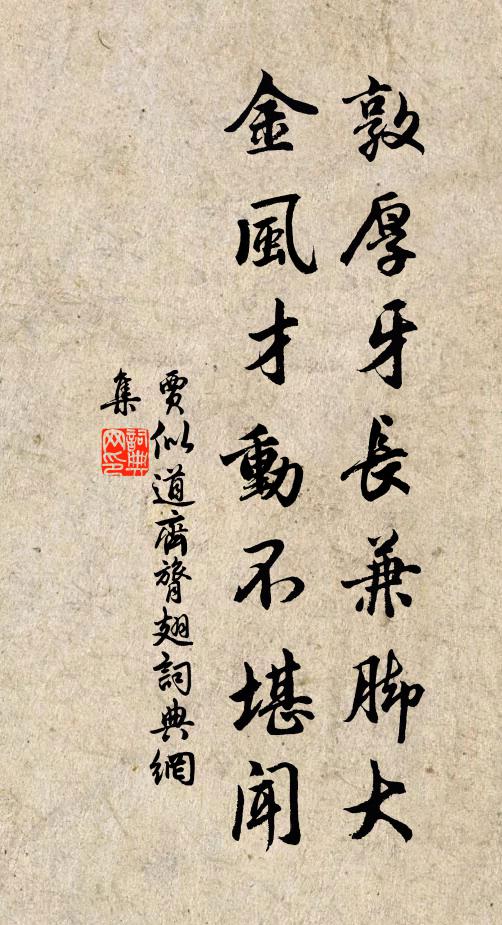 敦厚牙長兼脚大
金風才動不堪聞
賈似道齊膂翅詞典網
集
詞典
网印